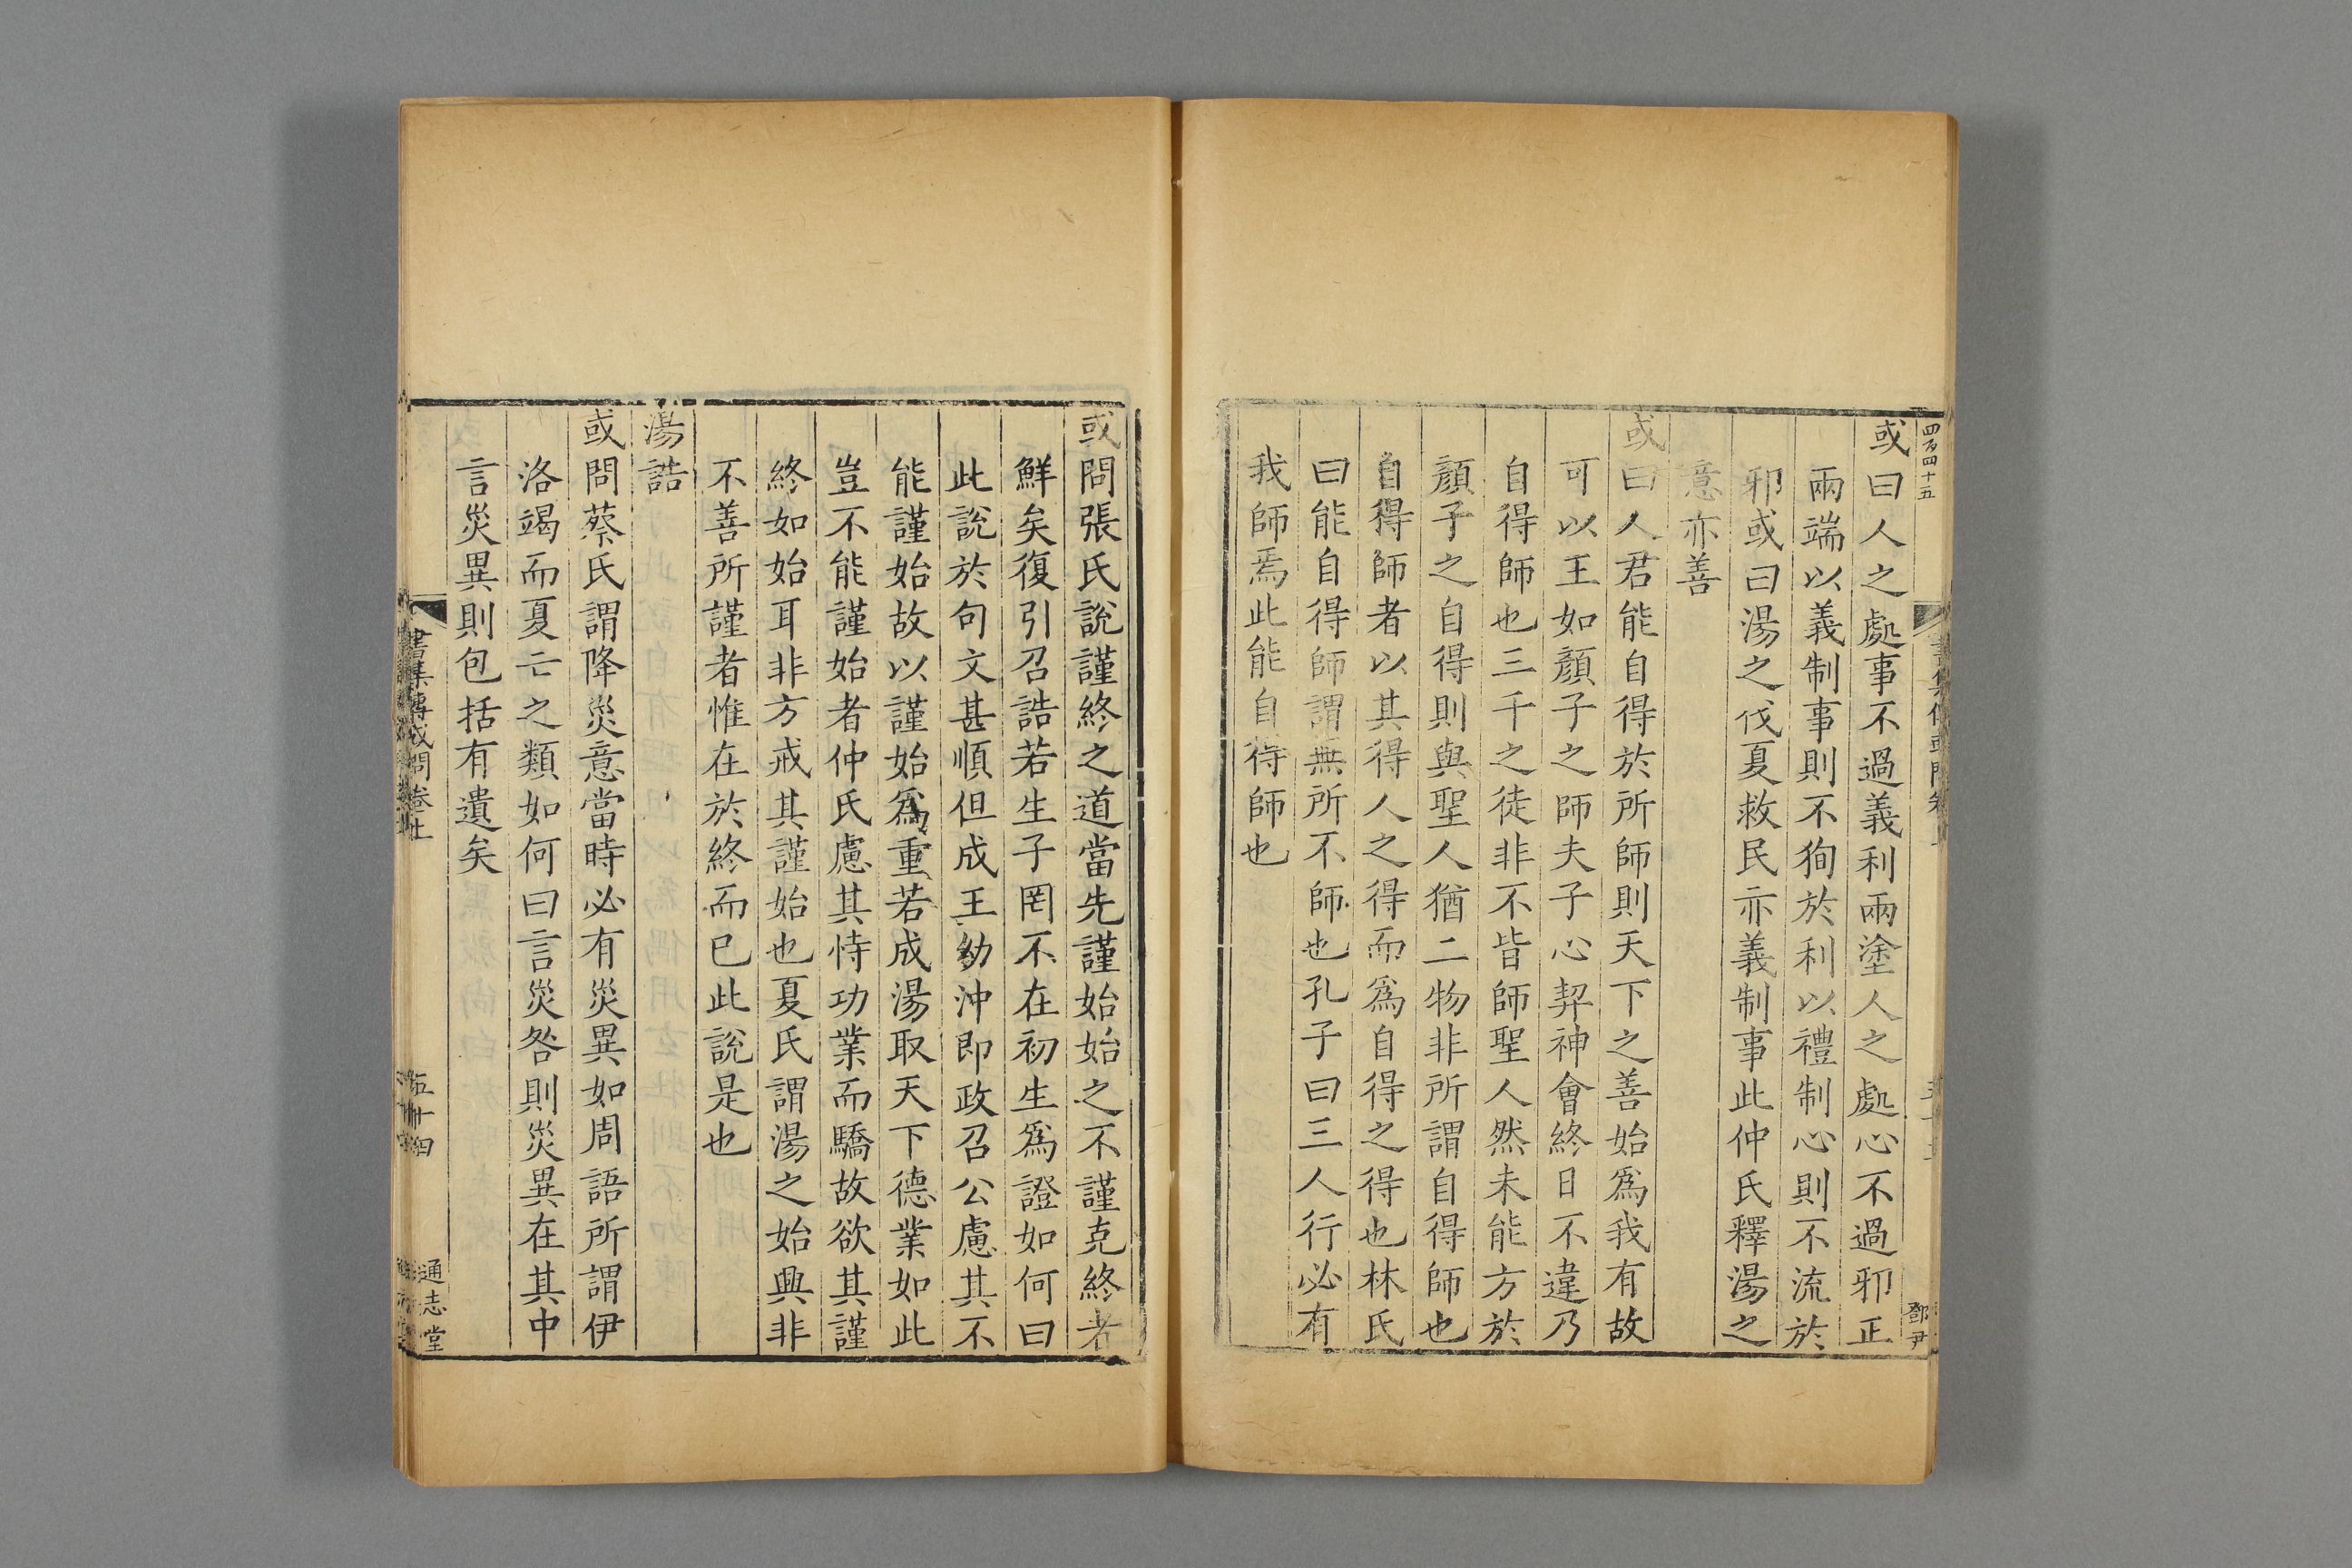 四百四十五
或曰人之處事不過義利兩塗人之處心不過邪正
兩端以義制事則不狥於利以禮制心則不流於
邪或曰湯之伐夏救民亦義制事此仲氏釋湯之
意亦善
或曰人君能自得於所師則天下之善始爲我有故
可以王如顏子之師夫子心契神會終日不違乃
自得師也三千之徒非不皆師聖人然未能方於
顏子之自得則與聖人猶二物非所謂自得師也
自得師者以其得人之得而爲自得之得也林氏
曰能自得師謂無所不師也孔子曰三人行必有
我師焉此能自得師也
鄧尹
或問張氏說謹終之道當先謹始始之不謹克終者
鮮矣復引召誥若生子罔不在初生爲證如何曰
此說於句文甚順但成王幼沖即政召公慮其不
能謹始故以謹始爲重若成湯取天下德業如此
豈不能謹始者仲氏慮其恃功業而驕故欲其謹
終如始耳非方戒其謹始也夏氏謂湯之始興非
不善所謹者惟在於終而已此說是也
湯誥
或問蔡氏謂降災意當時必有災異如周語所謂伊
洛竭而夏亡之類如何曰言災咎則災異在其中
言災異則包括有遺矣
書集傳或問卷上
五十四
通志堂